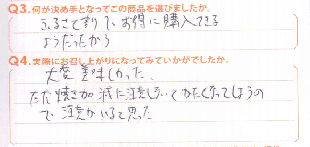 Q3.何が決め手となってこの商品を選びましたか。
ふるさと割りで、お得に購入できる
ようだったから
Q4.実際にお召し上がりになってみていかがでしたか。
大変美味しかった、
ただ焼き加減に注意しないとかたくなってしまうの
で注意がいると思った